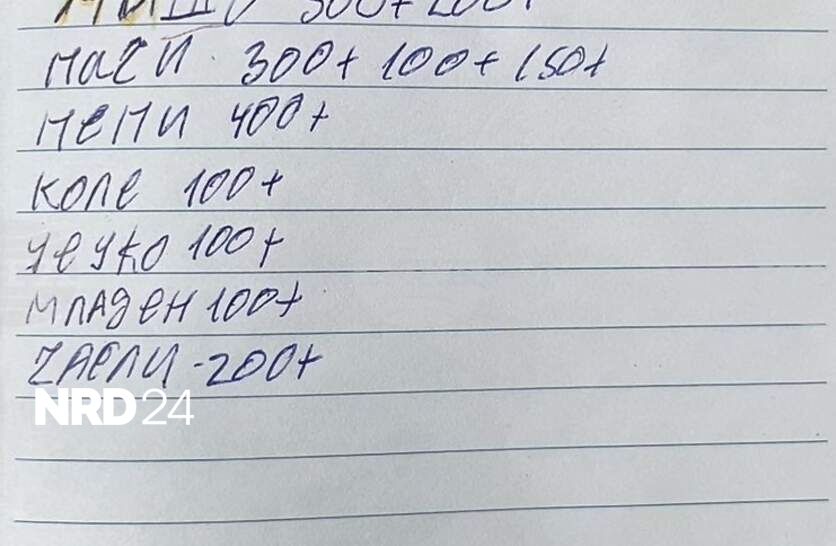 300+200+
МАСИ 300+ 100+ 150+
МЕМИ 400+
КОЛЕ 100+
100+
МЛАДЕН 100+
-200+
NRD24